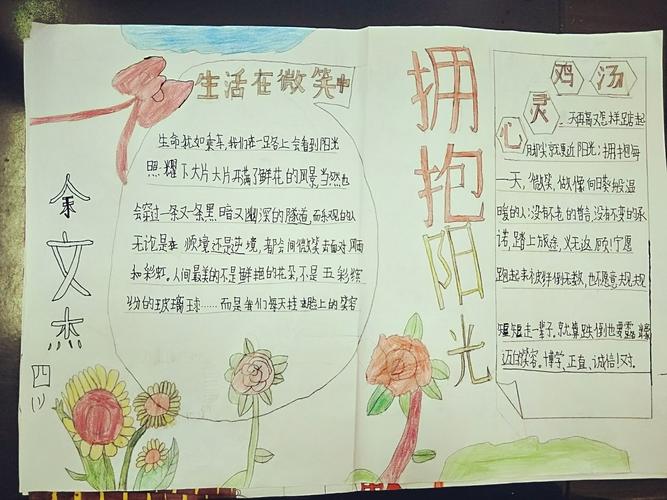 生活在微笑中
生命犹如列车,我们在一路上会看到阳光
照耀下大片大片开满了鲜花的风景,当然也
会穿过一条又一条黑暗又幽深的隧道,而乐观的人
无论是在顺境还是逆境,都会用微笑去面对风雨
和彩虹。人间最美的不是鲜艳的花朵,不是五彩缤
纷的玻璃球……而是我们每天挂在脸上的笑容
余文杰
四(1)
拥抱阳光
心灵鸡汤
天再高又怎样踮起
脚尖就更近阳光;拥抱每
一天,微笑,做像向日葵般温
暖的人;没有不老的誓言,没有不变的承
诺,踏上旅途,义无返顾!宁愿
跑起来被绊倒无数,也不愿意规规
矩矩走一辈子。就算跌倒也要豪
迈的笑容。博学、正直、诚信!对。